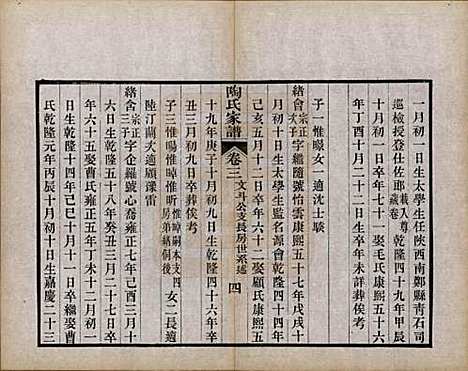 一月初一日生太學生任陝西南鄭縣青石司
巡檢授登仕佐郎乾隆四十九年甲辰
十一月初一日卒年七十一娶毛氏康熙五十六
年丁酉十月二十日生卒年未詳葬俟考
子一惟畷女一適沈士騤
緒會宗正字繼隨號怡雲康熙五十七年戊戌十
月初十日生太學生監名源會乾隆四十四年
己亥五月十二日卒年六十二娶顧氏康熙五
陶氏家譜 卷三 文斗公支長房世系述 四
十九年庚子十月初九日生乾隆四十六年辛
丑三月初九日卒年六十二葬俟考
子三惟暘惟晫惟昕惟晫嗣本支四房弟緒侗後女二長適
陸汀蘭次適顧豫雷
緒含宗正三子字企羅號心喬雍正七年己酉三月
六日生乾隆五十八年癸丑三月二十七日卒
年六十五娶曹氏雍正五年丁未十二月初一
日生乾隆十四年八月十一日卒繼娶曹
氏乾隆元年丙辰十月初十日生嘉慶二十三